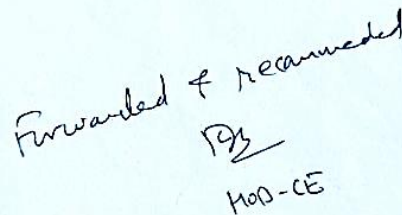 Forwarded & recommeded
HOD-CE